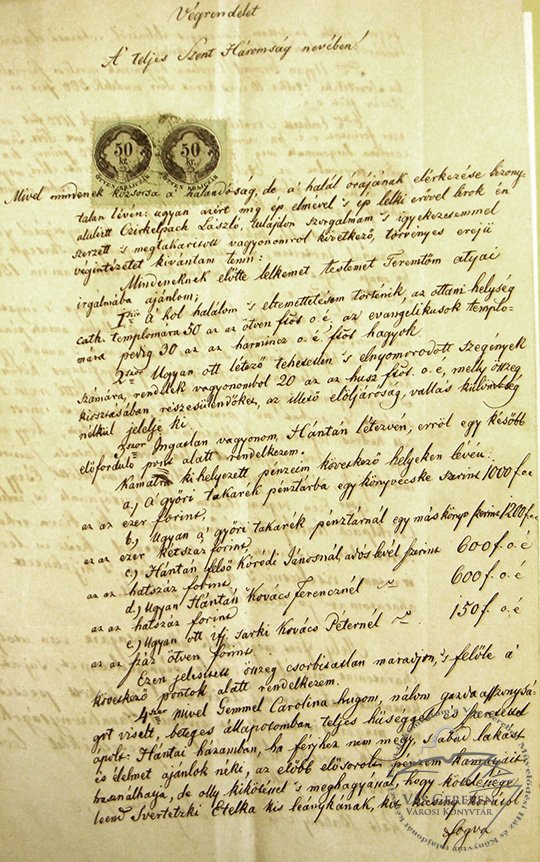 Végrendelet
A' teljes Szent Háromság nevében!
50 kr. 50 kr.
Mivel mindenek közsorsa a' halandóság, de a' halál órájának elérkezése bizony-
talan lévén: ugyan azért míg ép elmével 's ép lelki erővel birok én
alulirt Czirkelpack László, tulajdon szorgalmam 's igyekezetemmel
szerzett 's megtakaritott vagyonomrol következő, törvényes erejü
végintézetet kivántam tenni:
Mindeneknek előtte lelkemet, testemet Teremtőm atyai
irgalmába ajánlom;
1ször A' hol halálom 's eltemettetésem történik, az ottani helység
cath. templomára 50 az az ötven frtot o.é., az evangélikusok templo-
mára pedig 30 az az harmincz o.é. frtot hagyok
2szor Ugyan ott létező tehetetlen 's elnyomorodott szegények
számára, rendelek vagyonombol 20 az az husz frtot. o.é., mely összeg
kiosztásában részesülendőket, az illető előljáróság, vallás különbség
nélkül jelelje ki
3szor Ingatlan vagyonom Hántán létezvén, erről egy később
előforduló pont alatt rendelkezem.
Kamatra kihelyezett pénzeim következő helyeken lévén:
a.) A' győri takarék pénztárba egy könyvecske szerint 1000 f. o.é
az az ezer forint,
b.) Ugyan a' győri takarék pénztárnál egy más könyv szerint 1200 f. o.é
az az ezer kétszáz forint,
c.) Hántán felső Koródi Jánosnál, adós levél szerint 600 f. o. é
az az hatszáz forint,
d.) Ugyan Hántán Kovács Ferencznél 600 f. o. é
az az hatszáz forint
e.) Ugyan ott ifj. Sarki Kovács Péternél 150 f. o. é
az az száz ötven forint.
Ezen jelentett összeg csorbitatlan maradjon, 's felőle a'
következő pontok alatt rendelkezem.
4szer Mivel Gemmel Carolina hugom, nálom gazdaasszonysá-
got viselt, beteges állapotomban teljes hüséggel és szeretettel
ápolt: Hántai házamban, ha férjhez nem megy, szabad lakást
és élelmet ajánlok néki, az előbb elősorolt pénzem kamatjait
használhatja, de olly kikötéssel 's meghagyással, hogy kötelessége
leend Svertetzki Etelka kis leánykának, kit kicsiny korától
fogva
VAS GEREBEN
VÁROSI KÖNYVTÁR